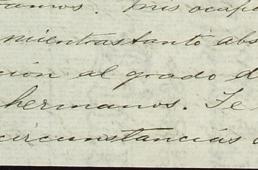 ramos. Mis ocupa
mientrastanto abs
ción al grado d
hermanos. Te
circunstancias